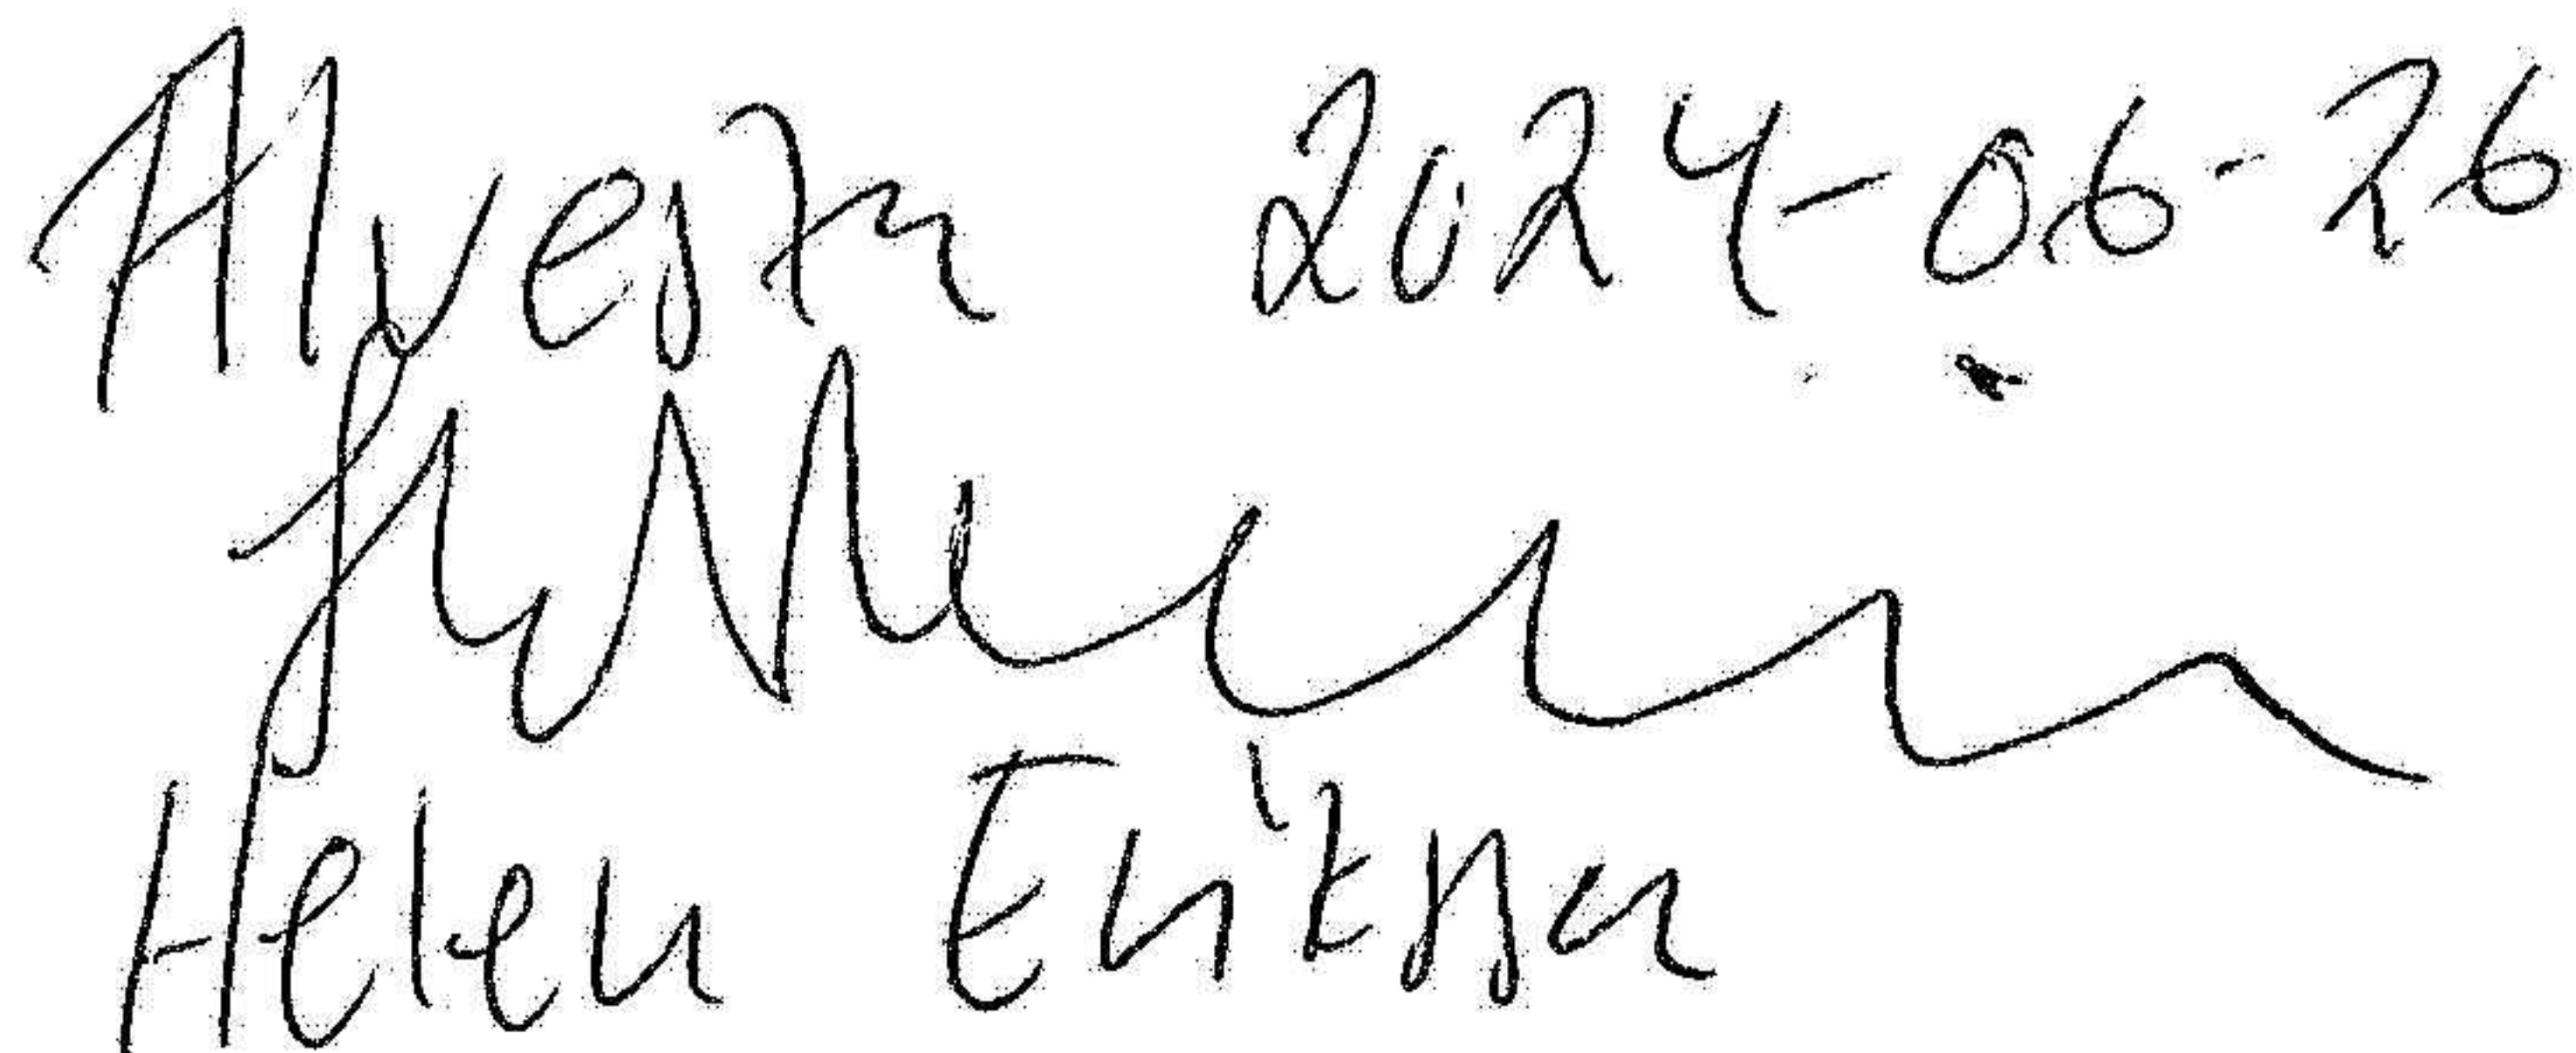 Alvesta 2024-06-26
Helen Eriksson